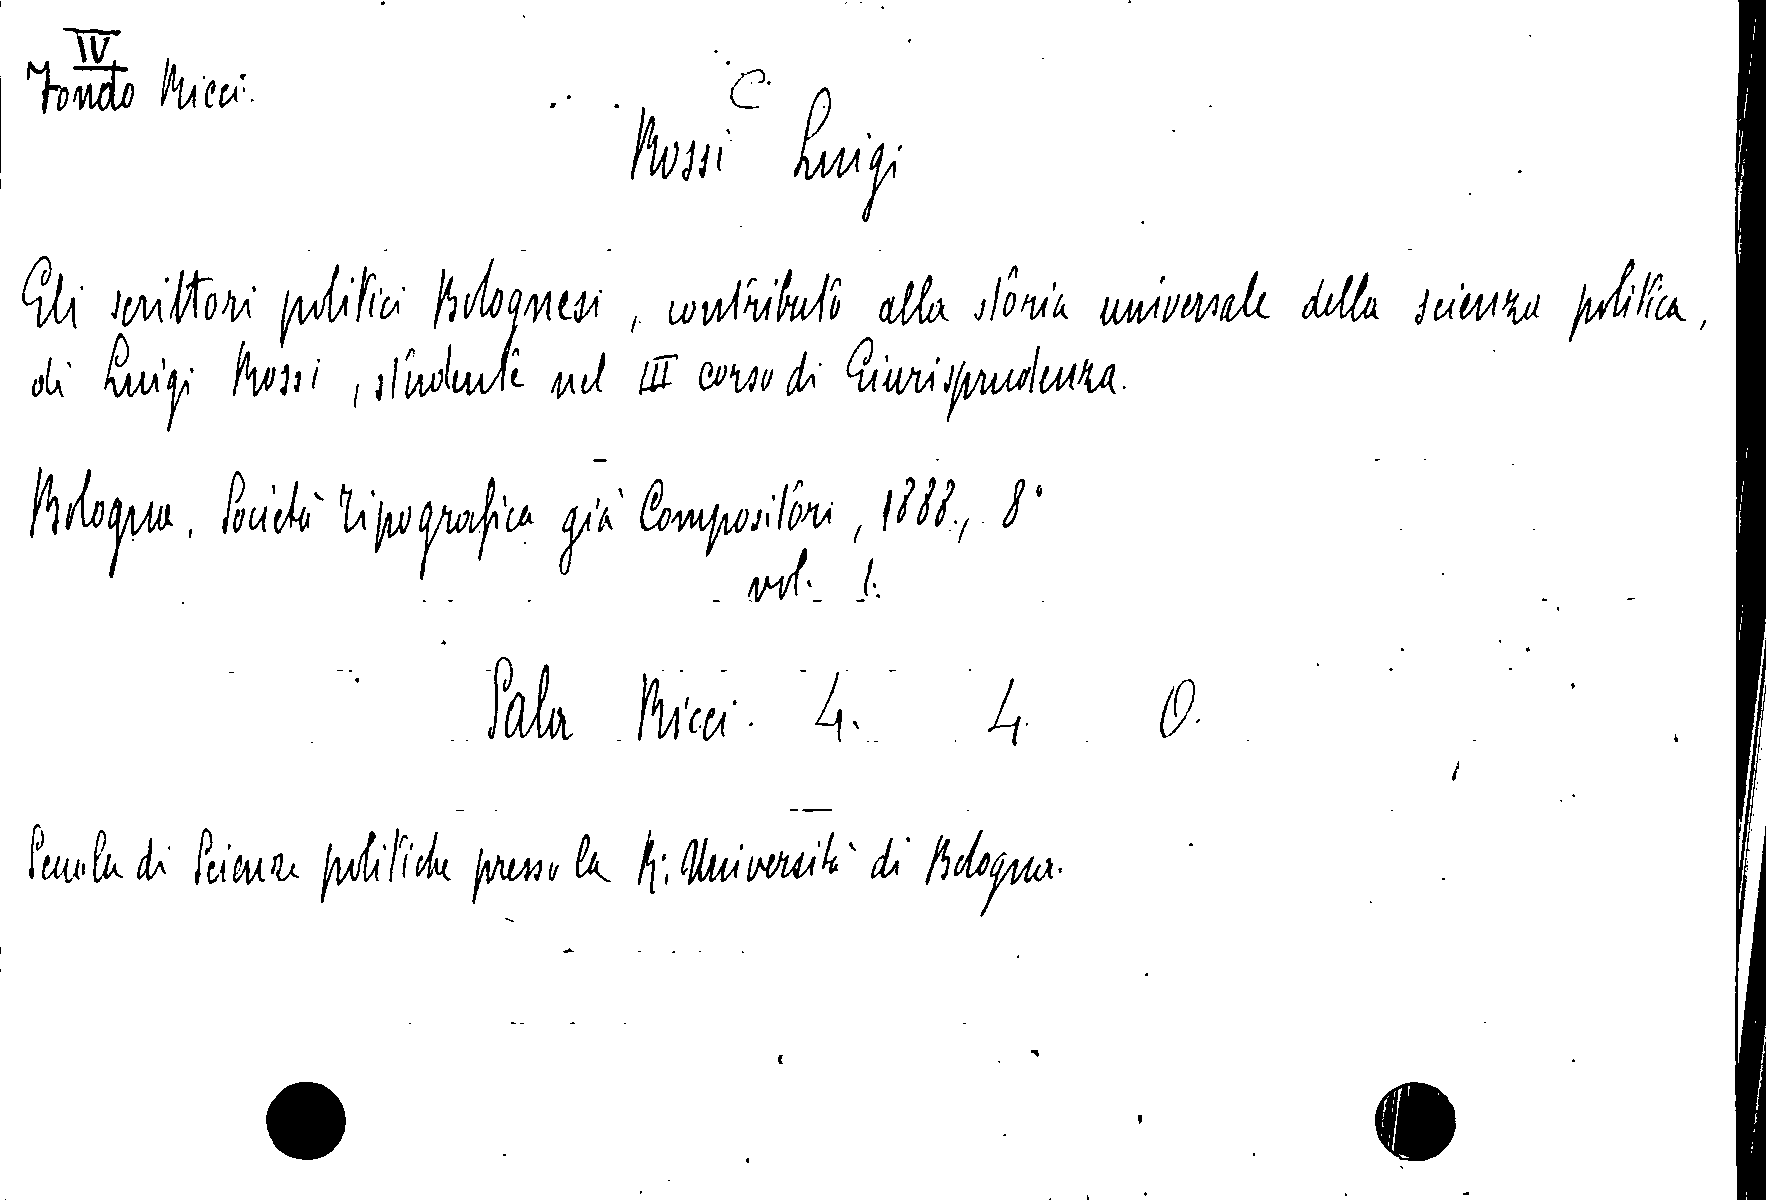 IV
Fondo Ricci.
C.
Rossi Luigi
Gli scrittori politici Bolognesi, contributo alla storia universale della scienza politica,
di Luigi Rossi, studente nel III corso di Giurisprudenza.
Bologna. Società Tipografica già Compositori, 1888., 8°
vol. 1.
Sala Ricci. 4. 4. O.
Scuola di Scienze politiche presso la R. Università di Bologna.